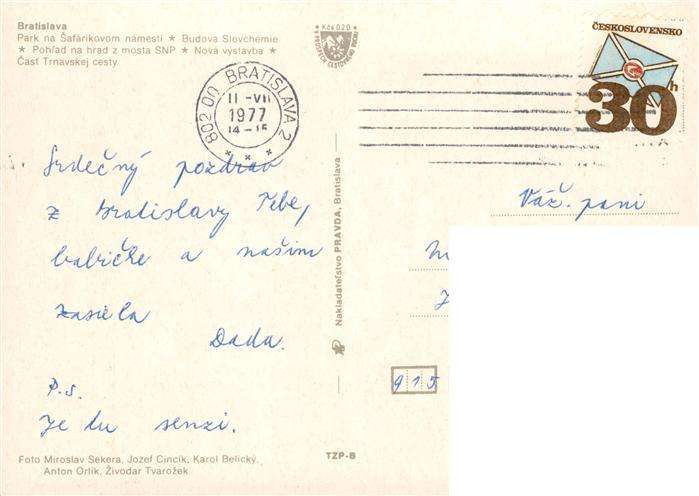 Bratislava
Park na Šafárikovom námestí ★ Budova Slovchémie
★ Pohľad na hrad z mosta SNP ★ Nová výstavba ★
Časť Trnavskej cesty
Kčs 0,20
V PROSPECH CESTOVNÉHO RUCHU
802 00 BRATISLAVA 2
11.-VII
1977
14-15
ČESKOSLOVENSKO
30h
Srdečný pozdrav
z Bratislavy Tebe,
babičke a našim
zasiela
Dada.
P.s.
Je tu senzi.
Nakladateľstvo PRAVDA, Bratislava
Váž. pani
915
Foto Miroslav Sekera, Jozef Cincík, Karol Belický,
Anton Orlík, Živodar Tvarožek
TZP-B